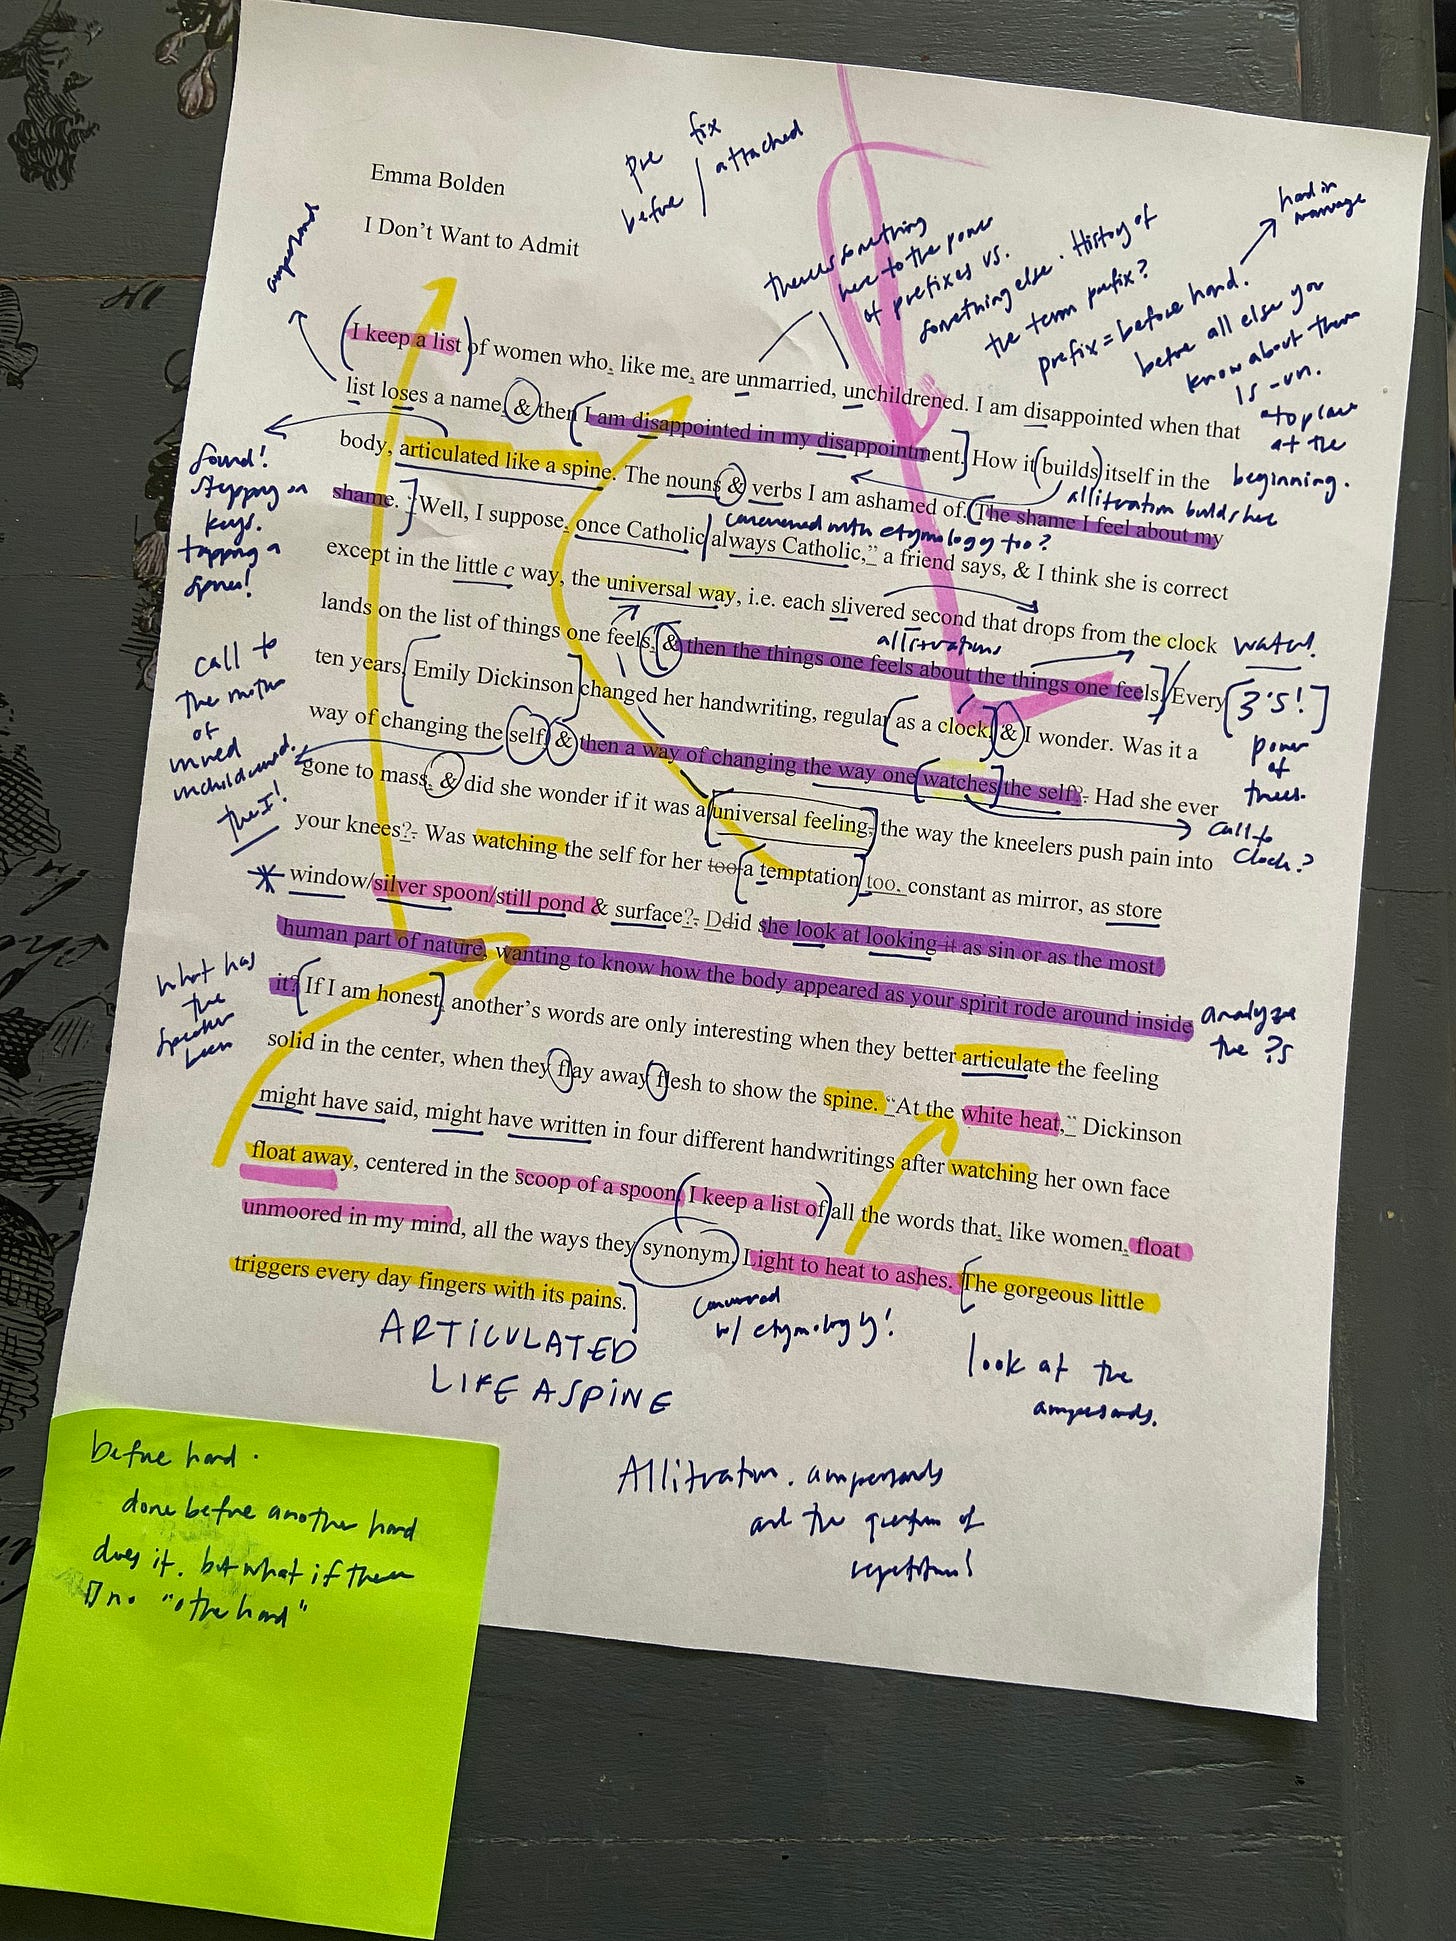 Emma Bolden
I Don't Want to Admit
pre fix
before / attached
ampersands
there's something
here to the power
of prefixes vs.
something else. History of
the term prefix?
prefix = before hand.
hand in
marriage
before all else you
know about them
is -un.
to place
at the
beginning.
I keep a list of women who, like me, are unmarried, unchildrened. I am disappointed when that
list loses a name, & then I am disappointed in my disappointment. How it builds itself in the
body, articulated like a spine. The nouns & verbs I am ashamed of. The shame I feel about my
shame. "Well, I suppose, once Catholic always Catholic," a friend says, & I think she is correct
except in the little c way, the universal way, i.e. each slivered second that drops from the clock
lands on the list of things one feels, & then the things one feels about the things one feels. Every
ten years, Emily Dickinson changed her handwriting, regular as a clock, & I wonder. Was it a
way of changing the self, & then a way of changing the way one watches the self?. Had she ever
gone to mass, & did she wonder if it was a universal feeling, the way the kneelers push pain into
your knees?. Was watching the self for her too a temptation too, constant as mirror, as store
window/silver spoon/still pond & surface?. Ddid she look at looking it as sin or as the most
human part of nature, wanting to know how the body appeared as your spirit rode around inside
it? If I am honest, another's words are only interesting when they better articulate the feeling
solid in the center, when they flay away flesh to show the spine. "At the white heat," Dickinson
might have said, might have written in four different handwritings after watching her own face
float away, centered in the scoop of a spoon. I keep a list of all the words that, like women, float
unmoored in my mind, all the ways they synonym. Light to heat to ashes. The gorgeous little
triggers every day fingers with its pains.
alliteration builds here
concerned with etymology too?
alliterations
sound!
stepping on
keys.
tapping a
spine!
call to
the motion
of
unchildrened.
the I!
what has
the
speaker
been
water!
3's!
power
of
threes.
call to
clock?
analyze
the ?s
ARTICULATED
LIKE A SPINE
concerned
w/ etymology!
look at the
ampersands.
Alliteration. ampersands
and the question of
repetition!
before hand.
done before another hand
does it. but what if there
is no "other hand"